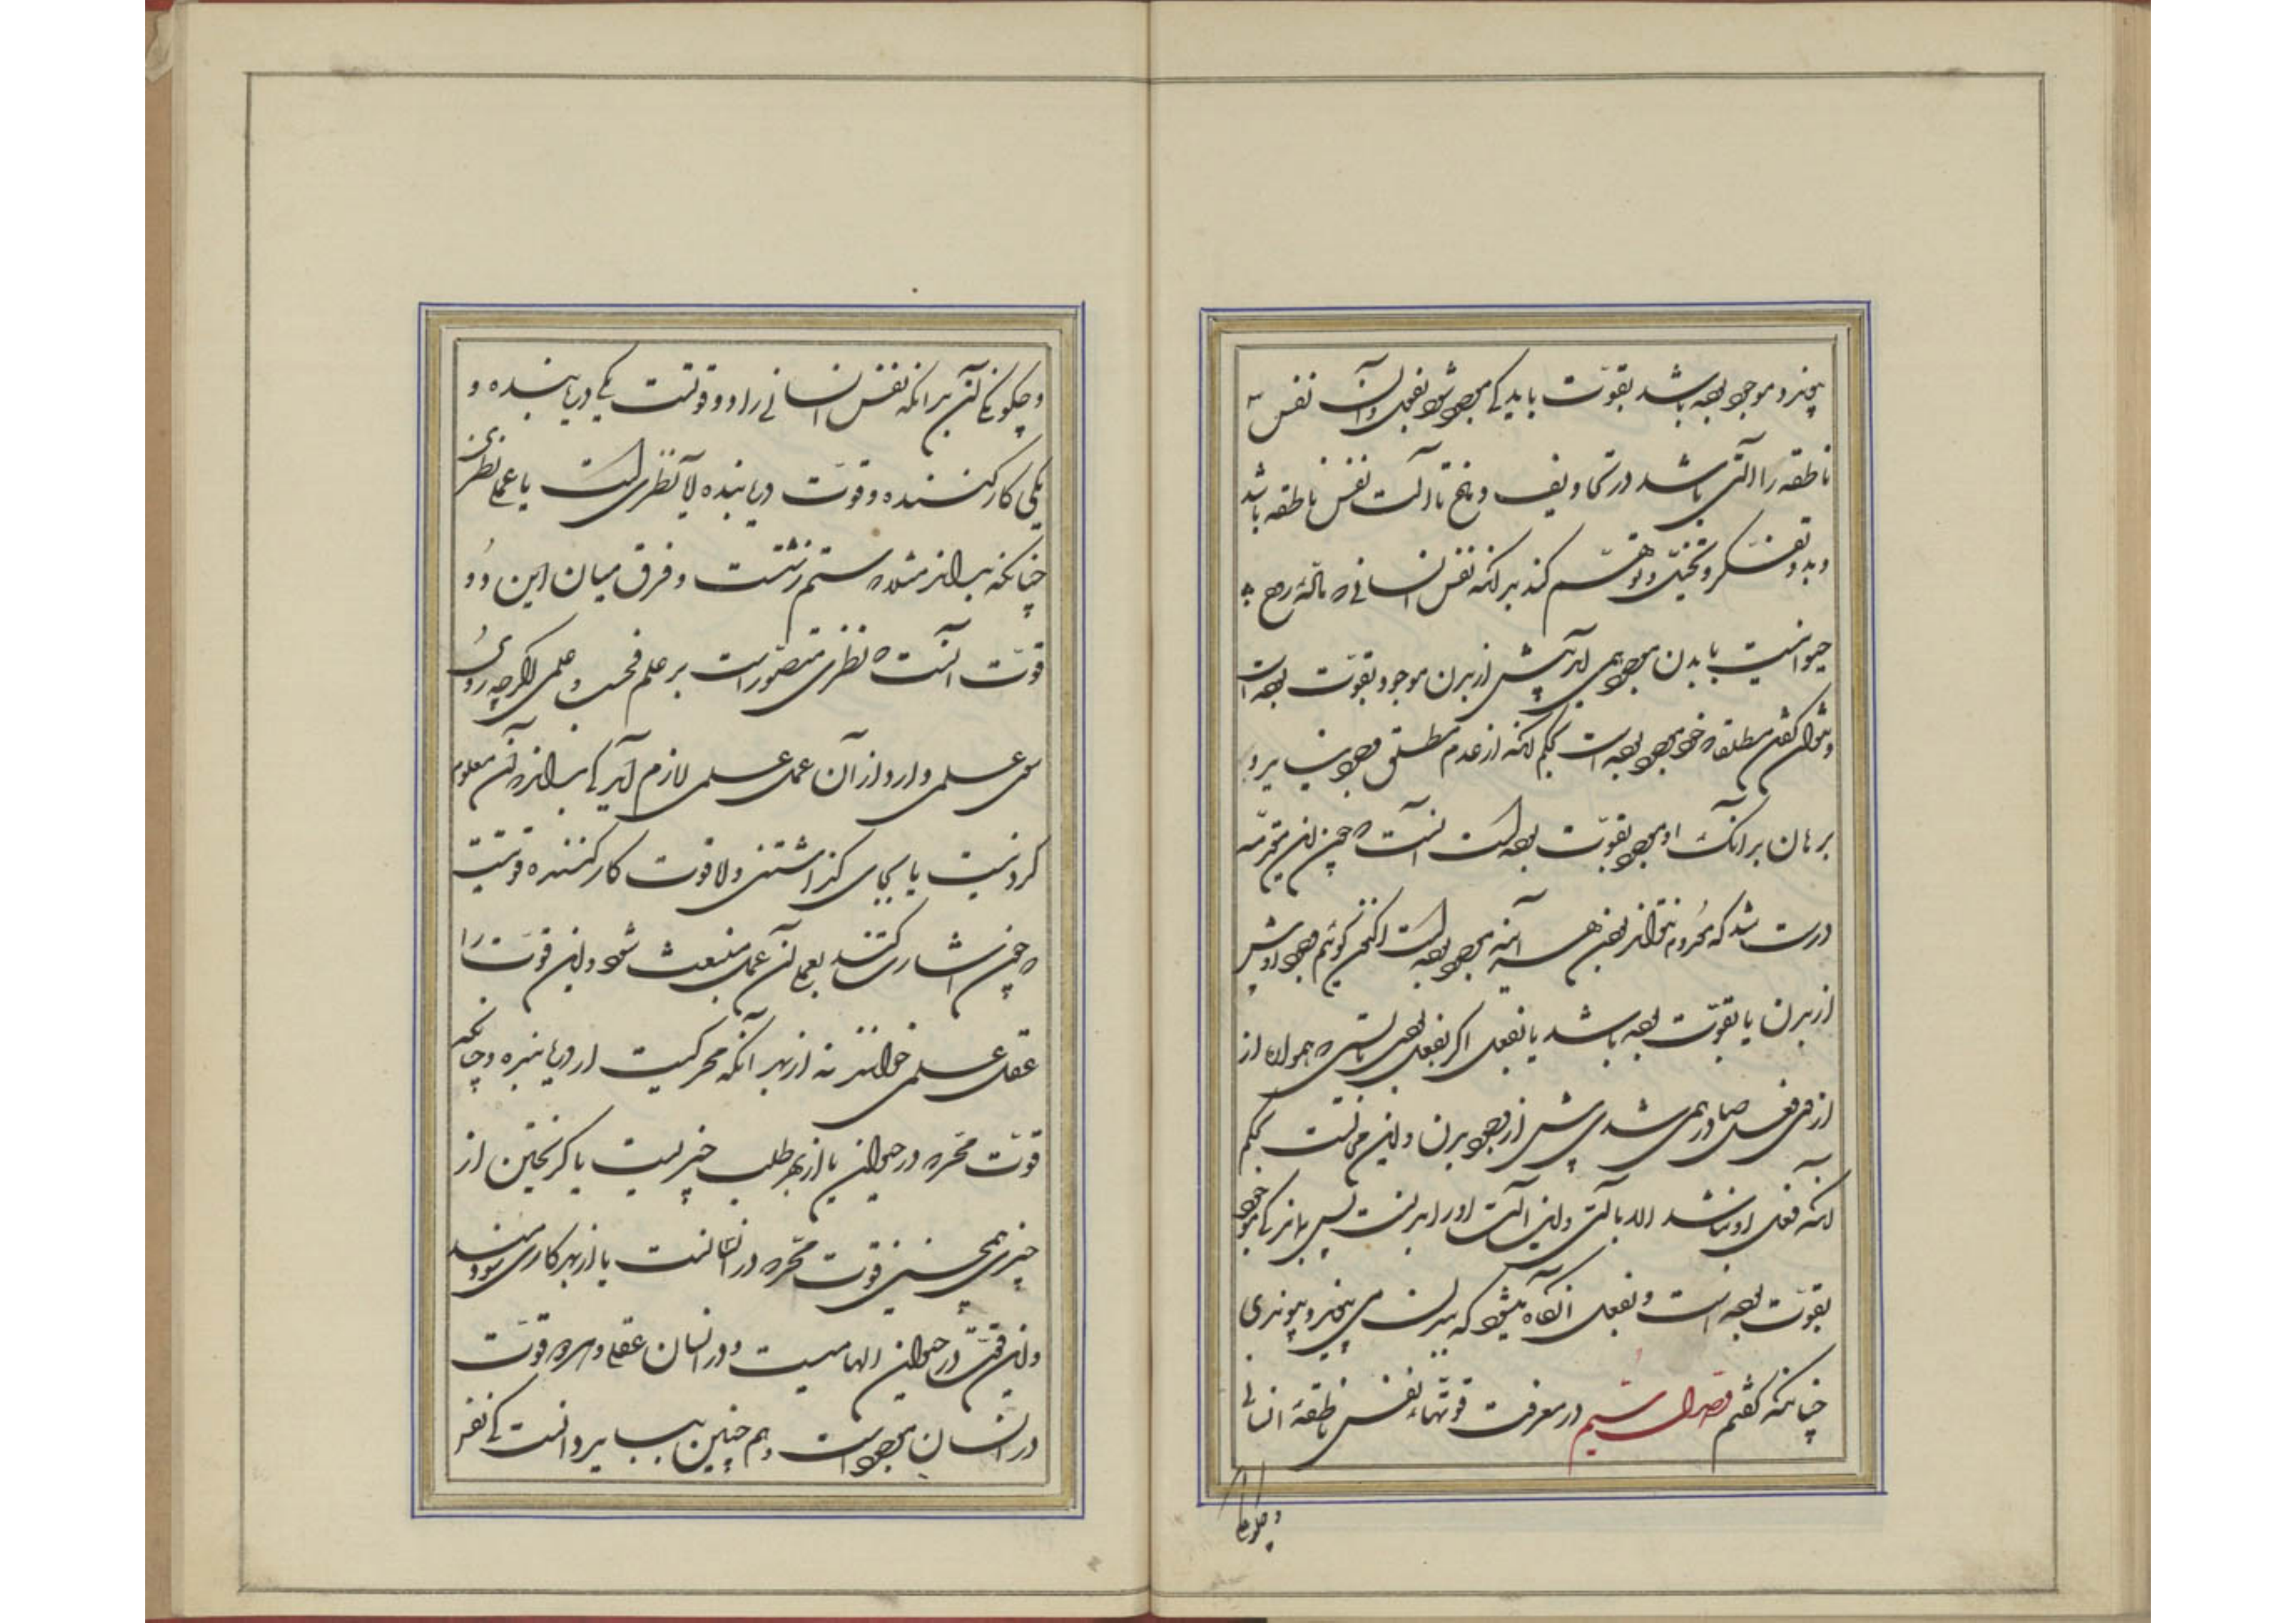 پیخیزد و موجود بوده باشد بقوّت باید کی موجود شود بفعل و آن نفس
ناطقه را آلتی باشد در تجاویف دماغ تا آلت نفس ناطقه باشد
و بدو تفکر و تخیّل و توهّم کند بدانکه نفس انسانی نه
حیوانیست با بدن موجود همی آید پیش از بدن موجود بقوّت بوده است
و نتوان گفتن مطلقا که خود موجود بوده است بحکم آنکه از عدم مطلق وجود نپذیرد
برهان بر آنک او موجود بقوّت بوده است آنست که چون این مقدّمه
درست شد که معدوم نتواند بودن هر آینه موجود بوده است اکنون گوئیم وجود او پیش
از بدن یا بقوّت بوده باشد یا بفعل اگر بفعل بودی بایستی که همواره از
از وی فعل صادر همی شدی پیش از وجود بدن و این محالست بحکم
آنکه فعل او نباشد الا بالتی و این آلت او را بدنست پس بماند کی موجود
بقوّت بوده است و بفعل آنگاه میشود که ببدن می پیخیزد و پیوندی
چنانکه گفتم فصل ششم در معرفت قوتهاء نفس ناطقهٔ انسانی
و چگونگی
و چگونگی آن بدانکه نفس انسانی را دو قوتست یکی دریابنده و
یکی کار کننده و قوّت دریابنده اما نظری است یا عملی نظری
چنانکه بداند مثلا که ستم زشتست و فرق میان این دو
قوّت آنست که نظری مقصور است بر علم فحسب و عملی اگرچه روی
سوی علمی دارد از آن عمل علمی لازم آید کی بداند که آن معلوم
کردنیست یا بجای گذاشتنی و اما قوت کار کننده قوتیست
که چون اشارت کنند بعمل آن عمل منبعث شود و این قوّت را
عقل عملی خوانند نه از بهر آنکه محرکیست از دریابنده و چنانچه
قوّت محرکه در حیوان یا از بهر طلب چیزیست یا گریختن از
چیزی همچنین قوت محرکه در انسانست یا از بهر کاری سودمند
و این قوّت در حیوان الهامیست و در انسان عقلی و هر دو قوّت
در انسان موجود است و هم چنین بباید دانست کی نفس